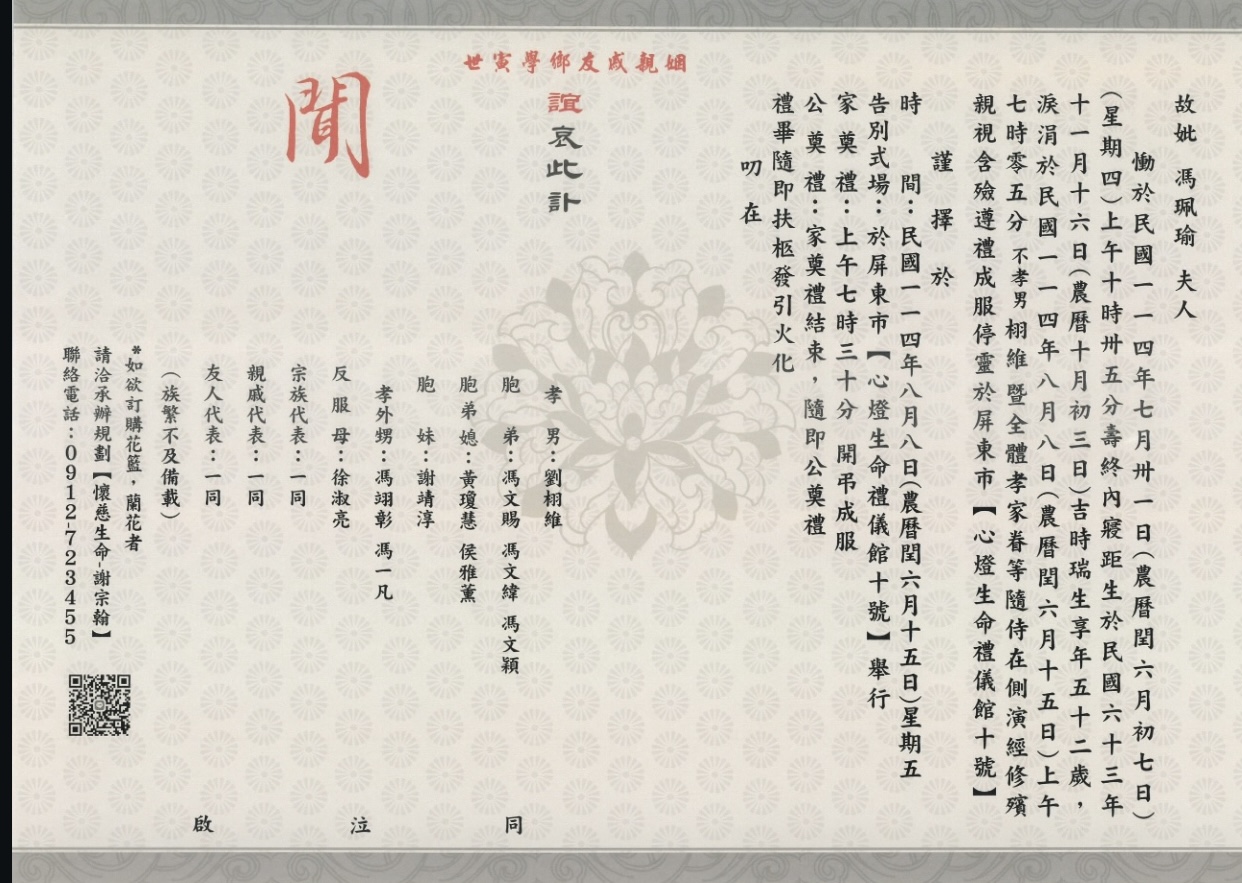 故妣 馮珮瑜 夫人
慟於民國一一四年七月卅一日(農曆閏六月初七日)
(星期四)上午十時卅五分壽終內寢距生於民國六十三年
十一月十六日(農曆十月初三日)吉時瑞生享年五十二歲，
淚涓於民國一一四年八月八日(農曆閏六月十五日)上午
七時零五分 不孝男 栩維 暨全體孝家眷等隨侍在側演經修殯
親視含殮遵禮成服停靈於屏東市【心燈生命禮儀館十號】
謹擇於
時間：民國一一四年八月八日(農曆閏六月十五日)星期五
告別式場：於屏東市【心燈生命禮儀館十號】舉行
家奠禮：上午七時三十分 開弔成服
公奠禮：家奠禮結束，隨即公奠禮
禮畢隨即扶柩發引火化
叨在
姻親戚友鄉學寅世
誼哀此訃
聞
孝男：劉栩維
胞弟：馮文賜 馮文緯 馮文穎
胞弟媳：黃瓊慧 侯雅薰
胞妹：謝靖淳
孝外甥：馮翊彰 馮一凡
反服母：徐淑亮
宗族代表：一同
親戚代表：一同
友人代表：一同
(族繁不及備載)
同泣啟
*如欲訂購花籃，蘭花者
請洽承辦規劃【懷慈生命-謝宗翰】
聯絡電話：0912-723455